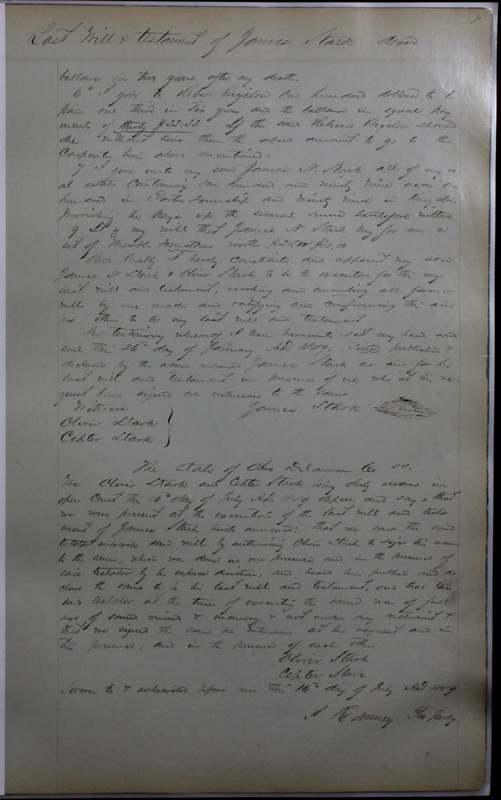 7
Last Will & testament of James Stark decd
ballance in two years after my death.
6th I give to Rebecca Bigelow One hundred dollars to be
paid one third in two years and the ballance in equal pay
ments of thirty $33.33 If the said Rebecca Bigelow should
die without heirs then the above amount to go to the
Carpenter heirs above mentioned.
7 I give unto my son James N. Stark all of my re
al estate Containing one hundred and ninety nine acres one
hundred in Porter Township and ninety nine in Kingston
providing he pays up the several sums heretofore
9 It is my will that James N. Stark buy for me a
set of Marble worth
And lastly I hereby constitute and appoint my sons
James N Stark & Oliver Stark to be the executors for this my
last will and testament, revoking and annulling all former
wills by me made and ratifying and confirming this and
no other to be my last will and testament
In testimony whereof I have hereunto set my hand and
seal this 26th day of January AD. 1859, Signed published &
declared by the above named James Stark as and for his
last will and testament in presence of us who at his re
quest have signed as witnesses to the same
Witness James Stark
Oliver Stark
Cepter Stark
The State of Ohio Delaware Co ss.
We Oliver Stark and Cepter Stark being duly sworn in
open Court the 16th day of July A.D. 1859 depose and say, that
we were present at the execution of the last will and testa
ment of James Stark hereto annexed; that we saw the said
testator said will by authorizing Oliver Stark to sign his name
to the same, which was done in our presence and in the presence of
said testator by his express direction, and heard him publish and de
clare the same to be his last will and testament, and that the
said testator at the time of executing the same was of full
age of sound mind & memory & not under any restraint &
that we signed the same as witnesses at his request and in
his presence, and in the presence of each other
Oliver Stark
Cepter Stark
Sworn to & subscribed before me this 16th day of July AD 1859
A Ranney Pro Judge